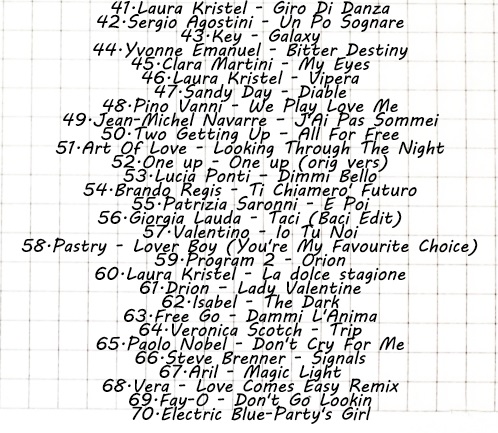 41·Laura Kristel - Giro Di Danza
42·Sergio Agostini - Un Po Sognare
43·Key - Galaxy
44·Yvonne Emanuel - Bitter Destiny
45·Clara Martini - My Eyes
46·Laura Kristel - Vipera
47·Sandy Day - Diable
48·Pino Vanni - We Play Love Me
49·Jean-Michel Navarre - J'Ai Pas Sommei
50·Two Getting Up - All For Free
51·Art Of Love - Looking Through The Night
52·One up - One up (orig vers)
53·Lucia Ponti - Dimmi Bello
54·Brando Regis - Ti Chiamero' Futuro
55·Patrizia Saronni - E Poi
56·Giorgia Lauda - Taci (Baci Edit)
57·Valentino - Io Tu Noi
58·Pastry - Lover Boy (You're My Favourite Choice)
59·Program 2 - Orion
60·Laura Kristel - La dolce stagione
61·Drion - Lady Valentine
62·Isabel - The Dark
63·Free Go - Dammi L'Anima
64·Veronica Scotch - Trip
65·Paolo Nobel - Don't Cry For Me
66·Steve Brenner - Signals
67·Aril - Magic Light
68·Vera - Love Comes Easy Remix
69·Fay-O - Don't Go Lookin
70·Electric Blue-Party's Girl